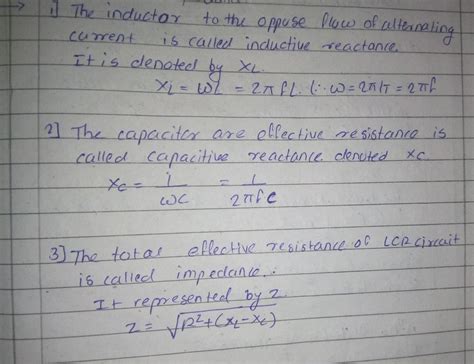 → 1] The inductor to the oppose flow of alternating
current is called inductive reactance.
It is denoted by XL.
XL = ωL = 2πfL. (∵ ω = 2π/T = 2πf
2] The capacitor are effective resistance is
called capacitive reactance denoted xc
Xc = 1/ωC = 1/2πfC
3] The total effective resistance of LCR circuit
is called impedance.
It represented by z.
z = √R²+(XL-Xc)